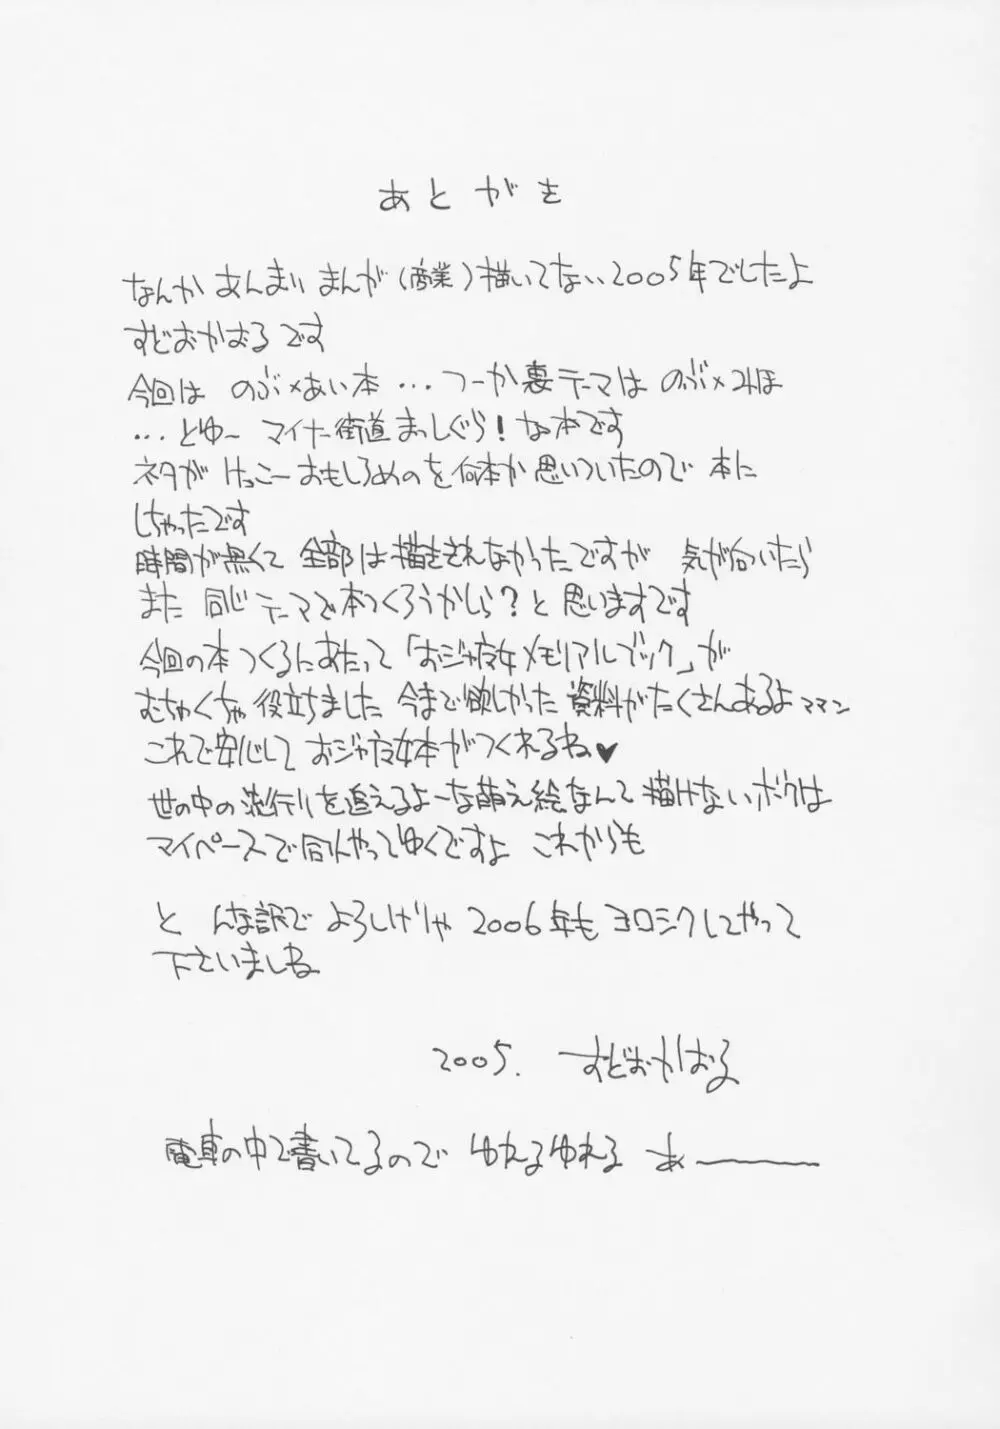 あとがき
なんか あんまり まんが(商業)描いてない2005年でしたよ
すどおかおるです
今回は のぶ×あい本 …つーか裏テーマは のぶ×みほ
…とゆー マイナー街道まっしぐら!な本です
ネタが けっこーおもしろめのを何本か思いついたので 本に
しちゃったです
時間が無くて 全部は描ききれなかったですが 気が向いたら
また 同じテーマで本つくろうかしら?と 思いますです
今回の本つくるにあたって「おジャ魔女メモリアルブック」が
むちゃくちゃ役立ちました 今まで欲しかった 資料がたくさんあるよママン
これで安心して おジャ魔女本がつくれるね♥
世の中の流行りを追えるよーな萌え絵なんて描けないボクは
マイペースで同人やってゆくですよ これからも
と んな訳で よろしけりゃ 2006年も ヨロシクしてやって
下さいましね
2005. すどおかおる
電車の中で書いてるので ゆれるゆれる あ〜